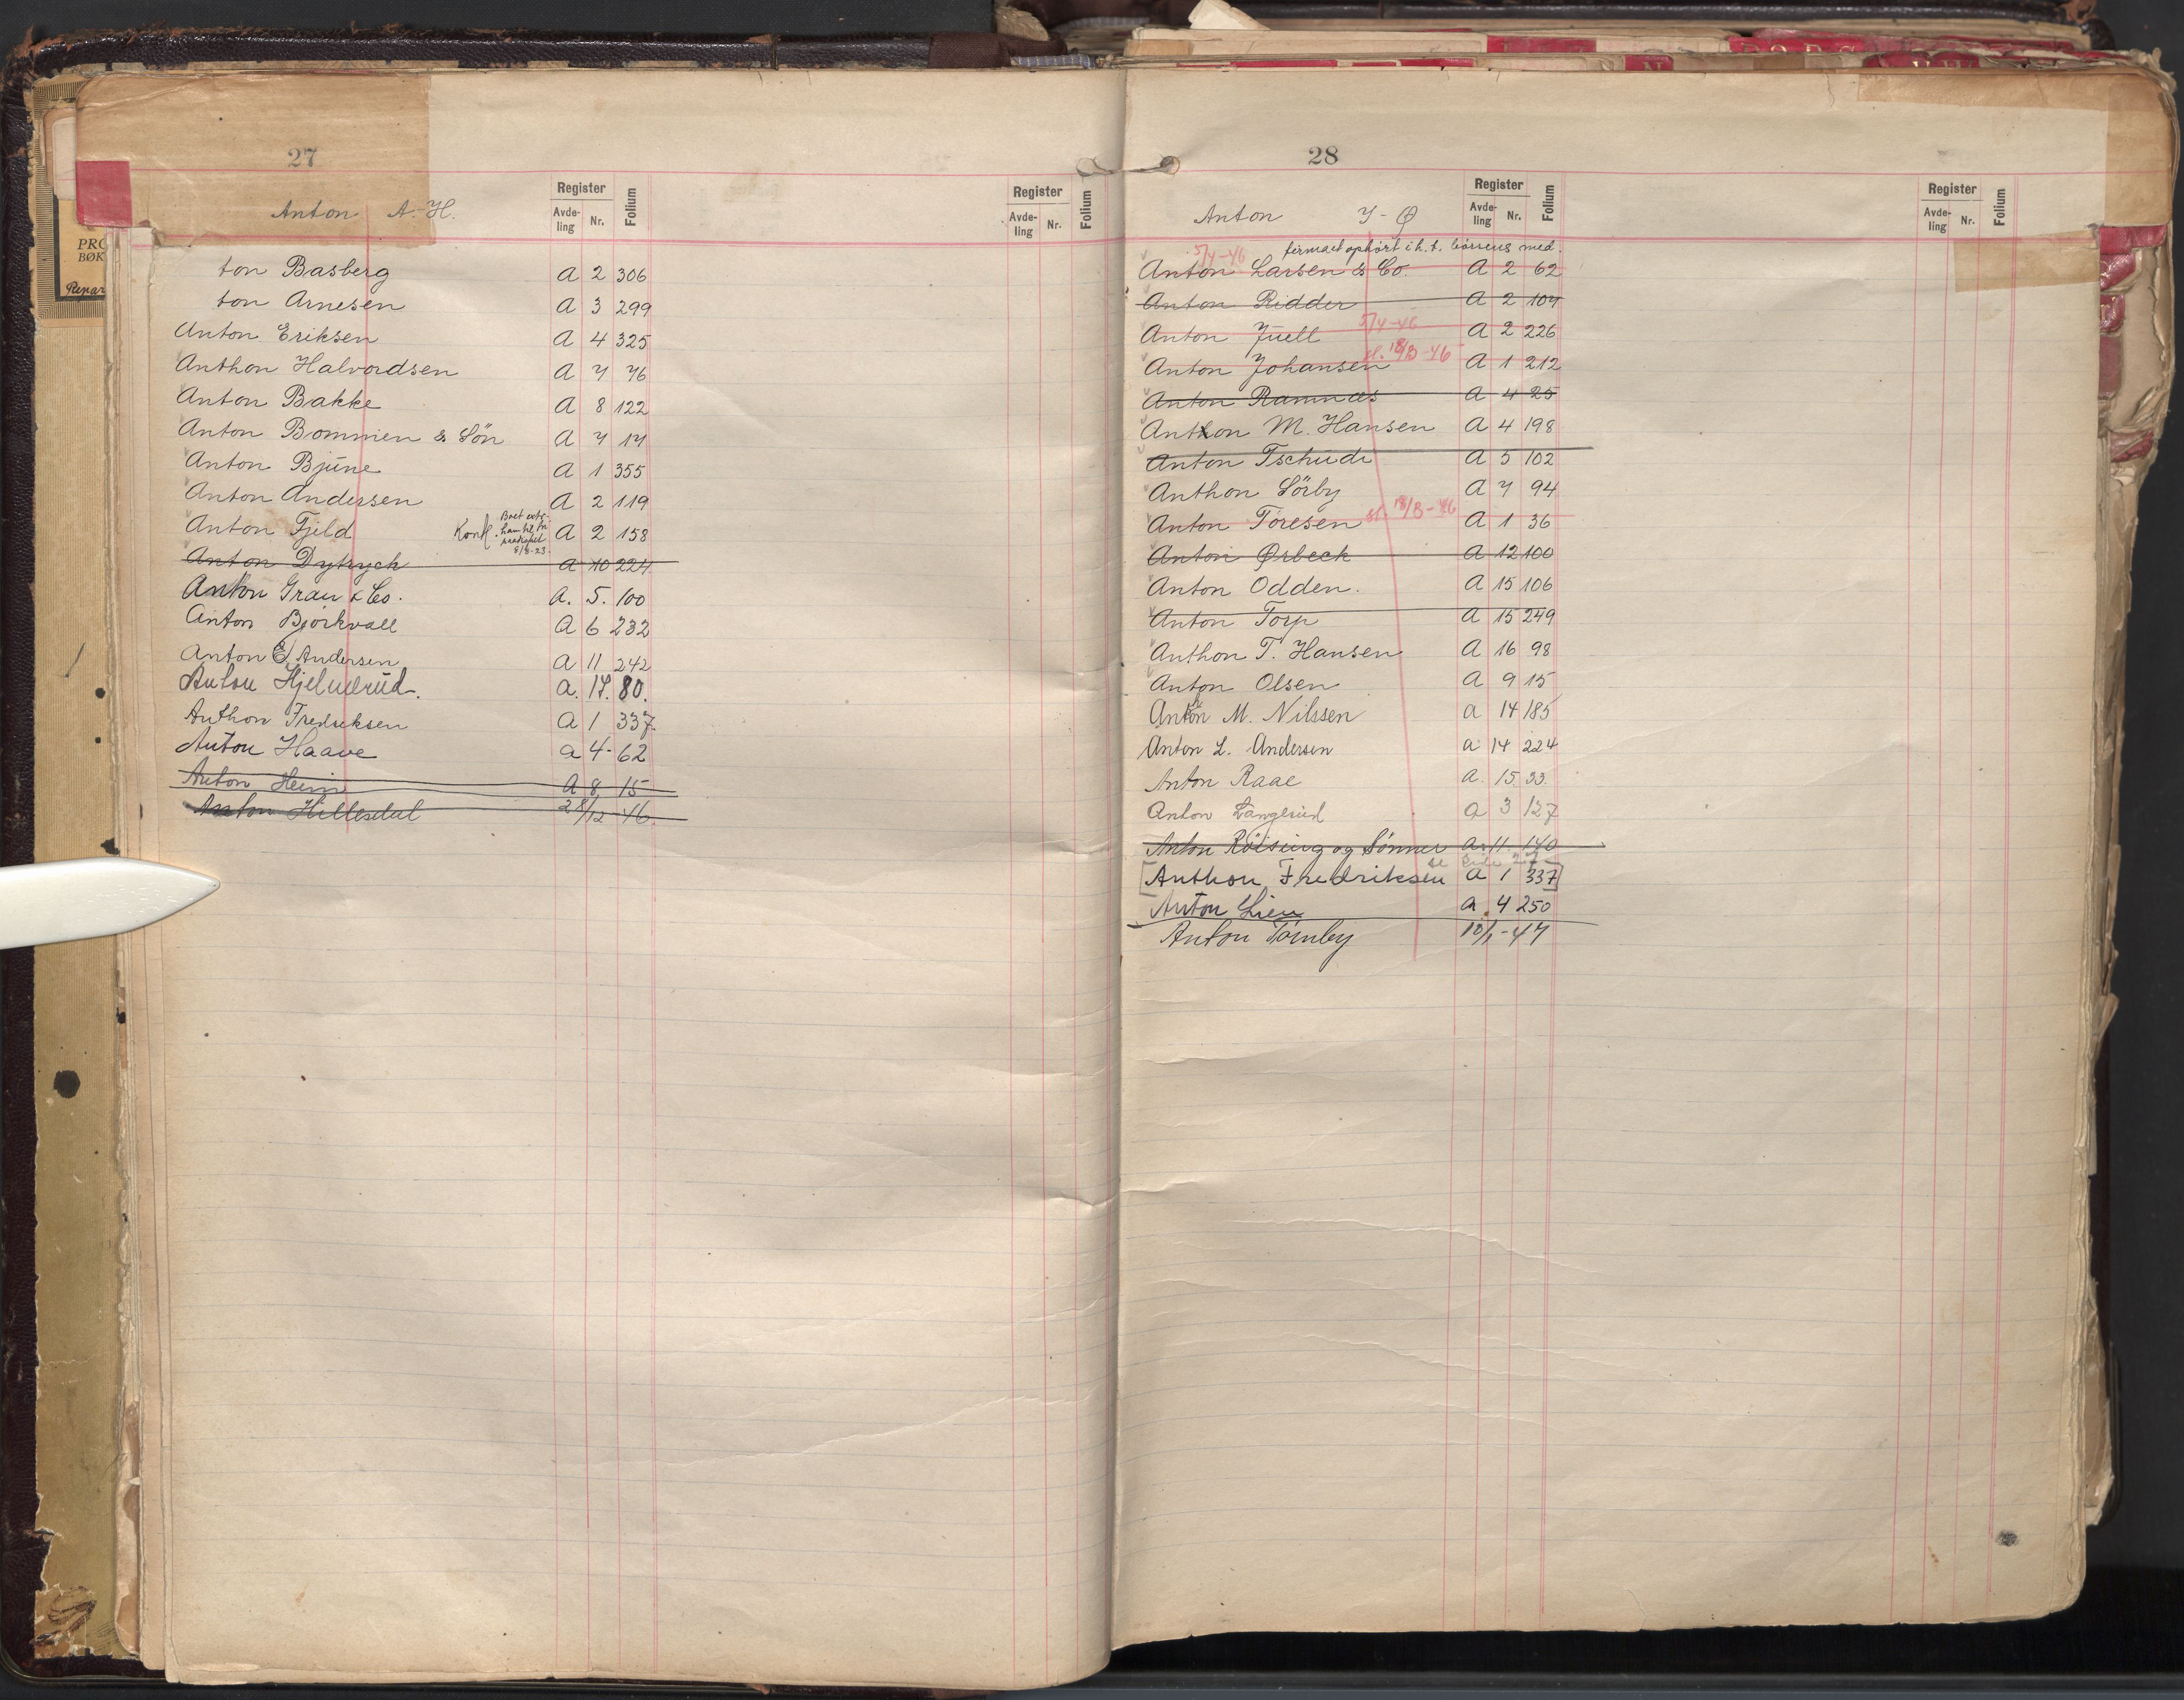 27
Anton A.-H.
Register
Avde-
ling
Nr.
Folium
Register
Avde-
ling
Nr.
Folium
ton Basberg A 2 306
ton Arnesen A 3 299
Anton Eriksen A 4 325
Anthon Halvordsen A 7 76
Anton Bakke A 8 122
Anton Bommen & Sön A 7 17
Anton Bjune A 1 355
Anton Andersen A 2 119
Anton Fjeld Konk. A 2 158
8/8-23
Anton Dytrych A 10 224
Anton Grau & Co. A. 5. 100
Anton Bjørkvall A 6 232
Anton E. Andersen A 11 242
Anton Hjelmerud. A. 17. 80.
Anthon Fredriksen A 1 337
Anton Haave a 4 - 62
Anton Heim A 8 15
Anton Hillesdal 28/12-46.
PRO
BØK
Repar
28
Anton J - Ø
Register
Avde-
ling
Nr.
Folium
Register
Avde-
ling
Nr.
Folium
5/4-46 firmaet ophört i h. t. börsens med.
Anton Larsen & Co. A 2 62
Anton Ridder A 2 107
Anton Juell 5/4-46 A 2 226
Anton Johansen sl. 18/3-46 A 1 212
Anton Ramnæs A 4 25
Anthon M. Hansen A 4 198
Anton Tschudi A 5 102
Anthon Sörby A 7 94
Anton Toresen sl. 18/3-46 A 1 36
Anton Ørbeck A 12 100
Anton Odden. A 15 106
Anton Torp A 15 249
Anthon T. Hansen A 16 98
Anton Olsen A 9 15
Anton M. Nilssen a 14 185
Anton L. Andersen a 14 224
Anton Raae a. 15. 33.
Anton Langerud a 3 127
Anton Röising og Sönner a. 11. 140
se side 27
[Anthon Fredriksen A 1 337]
Anton Lien a. 4 250
Anton Tömby 10/1-47